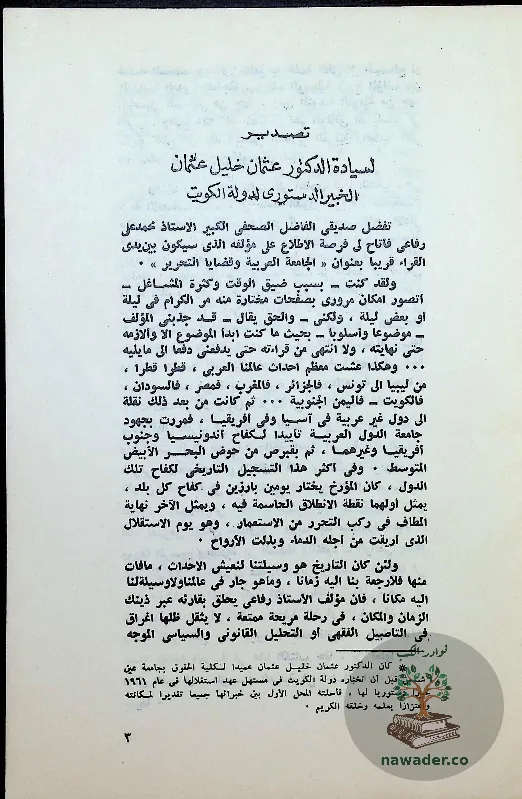 تصدير
لسيادة الدكتور عثمان خليل عثمان
الخبير الدستورى لدولة الكويت
تفضل صديقى الفاضل الصحفى الكبير الاستاذ محمد على
رفاعى فاتاح لى فرصة الاطلاع على مؤلفه الذى سيكون بين يدى
القراء قريبا بعنوان « الجامعة العربية وقضايا التحرير » ٠
ولقد كنت ــ بسبب ضيق الوقت وكثرة المشاغل ــ
اتصور امكان مرورى بصفحات مختارة منه مر الكرام فى ليلة
او بعض ليلة ، ولكنى ــ والحق يقال ــ قد جذبنى المؤلف
ــ موضوعا وأسلوبا ــ بحيث ما كنت ابدأ الموضوع الا والازمه
حتى نهايته ، ولا انتهى من قراءته حتى يدفعنى دفعا الى مايليه
٠٠٠ وهكذا عشت معظم احداث عالمنا العربى ، قطرا قطرا ،
من ليبيا الى تونس ، فالجزائر ، فالمغرب ، فمصر ، فالسودان ،
فالكويت ــ فاليمن الجنوبية ٠٠٠ ثم كانت من بعد ذلك نقلة
الى دول غير عربية فى آسيا وفى أفريقيا ، فمررت بجهود
جامعة الدول العربية تأييدا لكفاح أندونيسيا وجنوب
أفريقيا وغيرهما ، ثم بقبرص من حوض البحر الأبيض
المتوسط ٠ وفى اكثر هذا التسجيل التاريخى لكفاح تلك
الدول ، كان المؤرخ يختار يومين بارزين فى كفاح كل بلد ،
يمثل أولهما نقطة الانطلاق الحاسمة فيه ، ويمثل الآخر نهاية
المطاف فى ركب التحرر من الاستعمار ٠ وهو يوم الاستقلال
الذى اريقت من أجله الدماء وبذلت الأرواح ٠
ولئن كان التاريخ هو وسيلتنا لنعيش الأحداث ، مافات
منها فلارجعة بنا اليه زمانا ، وماهو جار فى عالمنا ولاوسيلة لنا
اليه مكانا ، فان مؤلف الأستاذ رفاعى يحلق بقارئه عبر ذينك
الزمان والمكان ، فى رحلة مريحة ممتعة ، لا يثقل ظلها اغراق
فى التاصيل الفقهى أو التحليل القانونى والسياسى الموجه
نوادر الكتب
※ كان الدكتور عثمان خليل عثمان عميدا لكلية الحقوق بجامعة عين
شمس قبل أن تختاره دولة الكويت فى مستهل عهد استقلالها فى عام ١٩٦١
دستوريا لها ، فأحلته المحل الأول بين خبرائها جميعا تقديرا لمكانته
واعتزازا بعلمه وخلقه الكريم ٠
٣
nawader.co